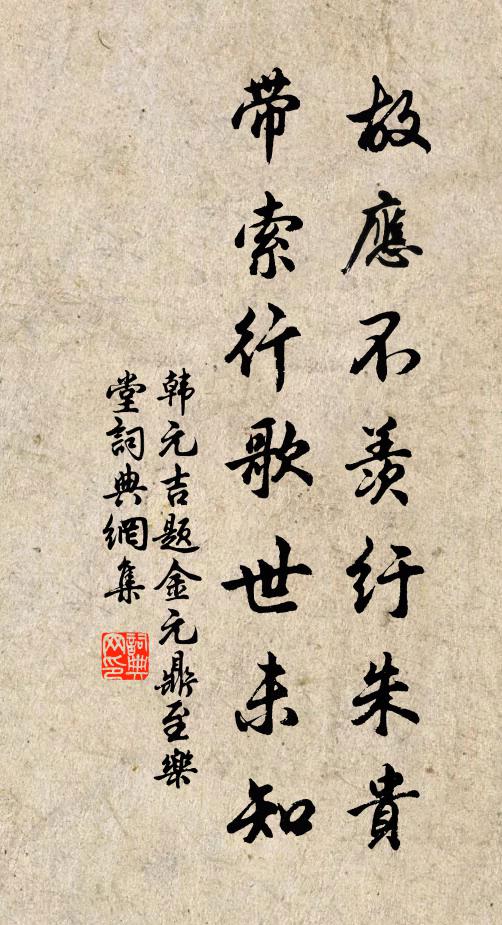 故應不羨纡朱貴
帶索行歌世未知
韩元吉题金元鼎至樂
堂詞典網集
詞典
网印